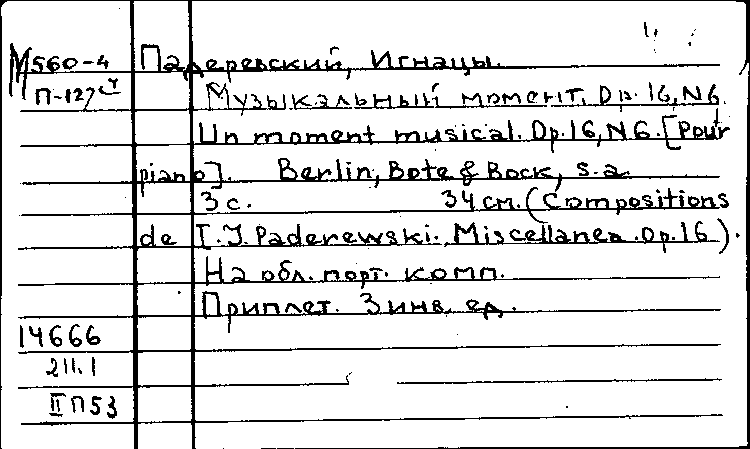 М560-4 Падеревский, Игнацы.
П-127
Музыкальный момент. Op. 16, N6.
Un moment musical. Op. 16, N6. [Pour
piano]. Berlin, Bote & Bock, s. a.
3 с. 34 см. (Compositions
de I. J. Paderewski. Miscellanea. Op. 16).
На обл. порт. комп.
Приплет. 3 инв. ед.
14666
211.1
II П53